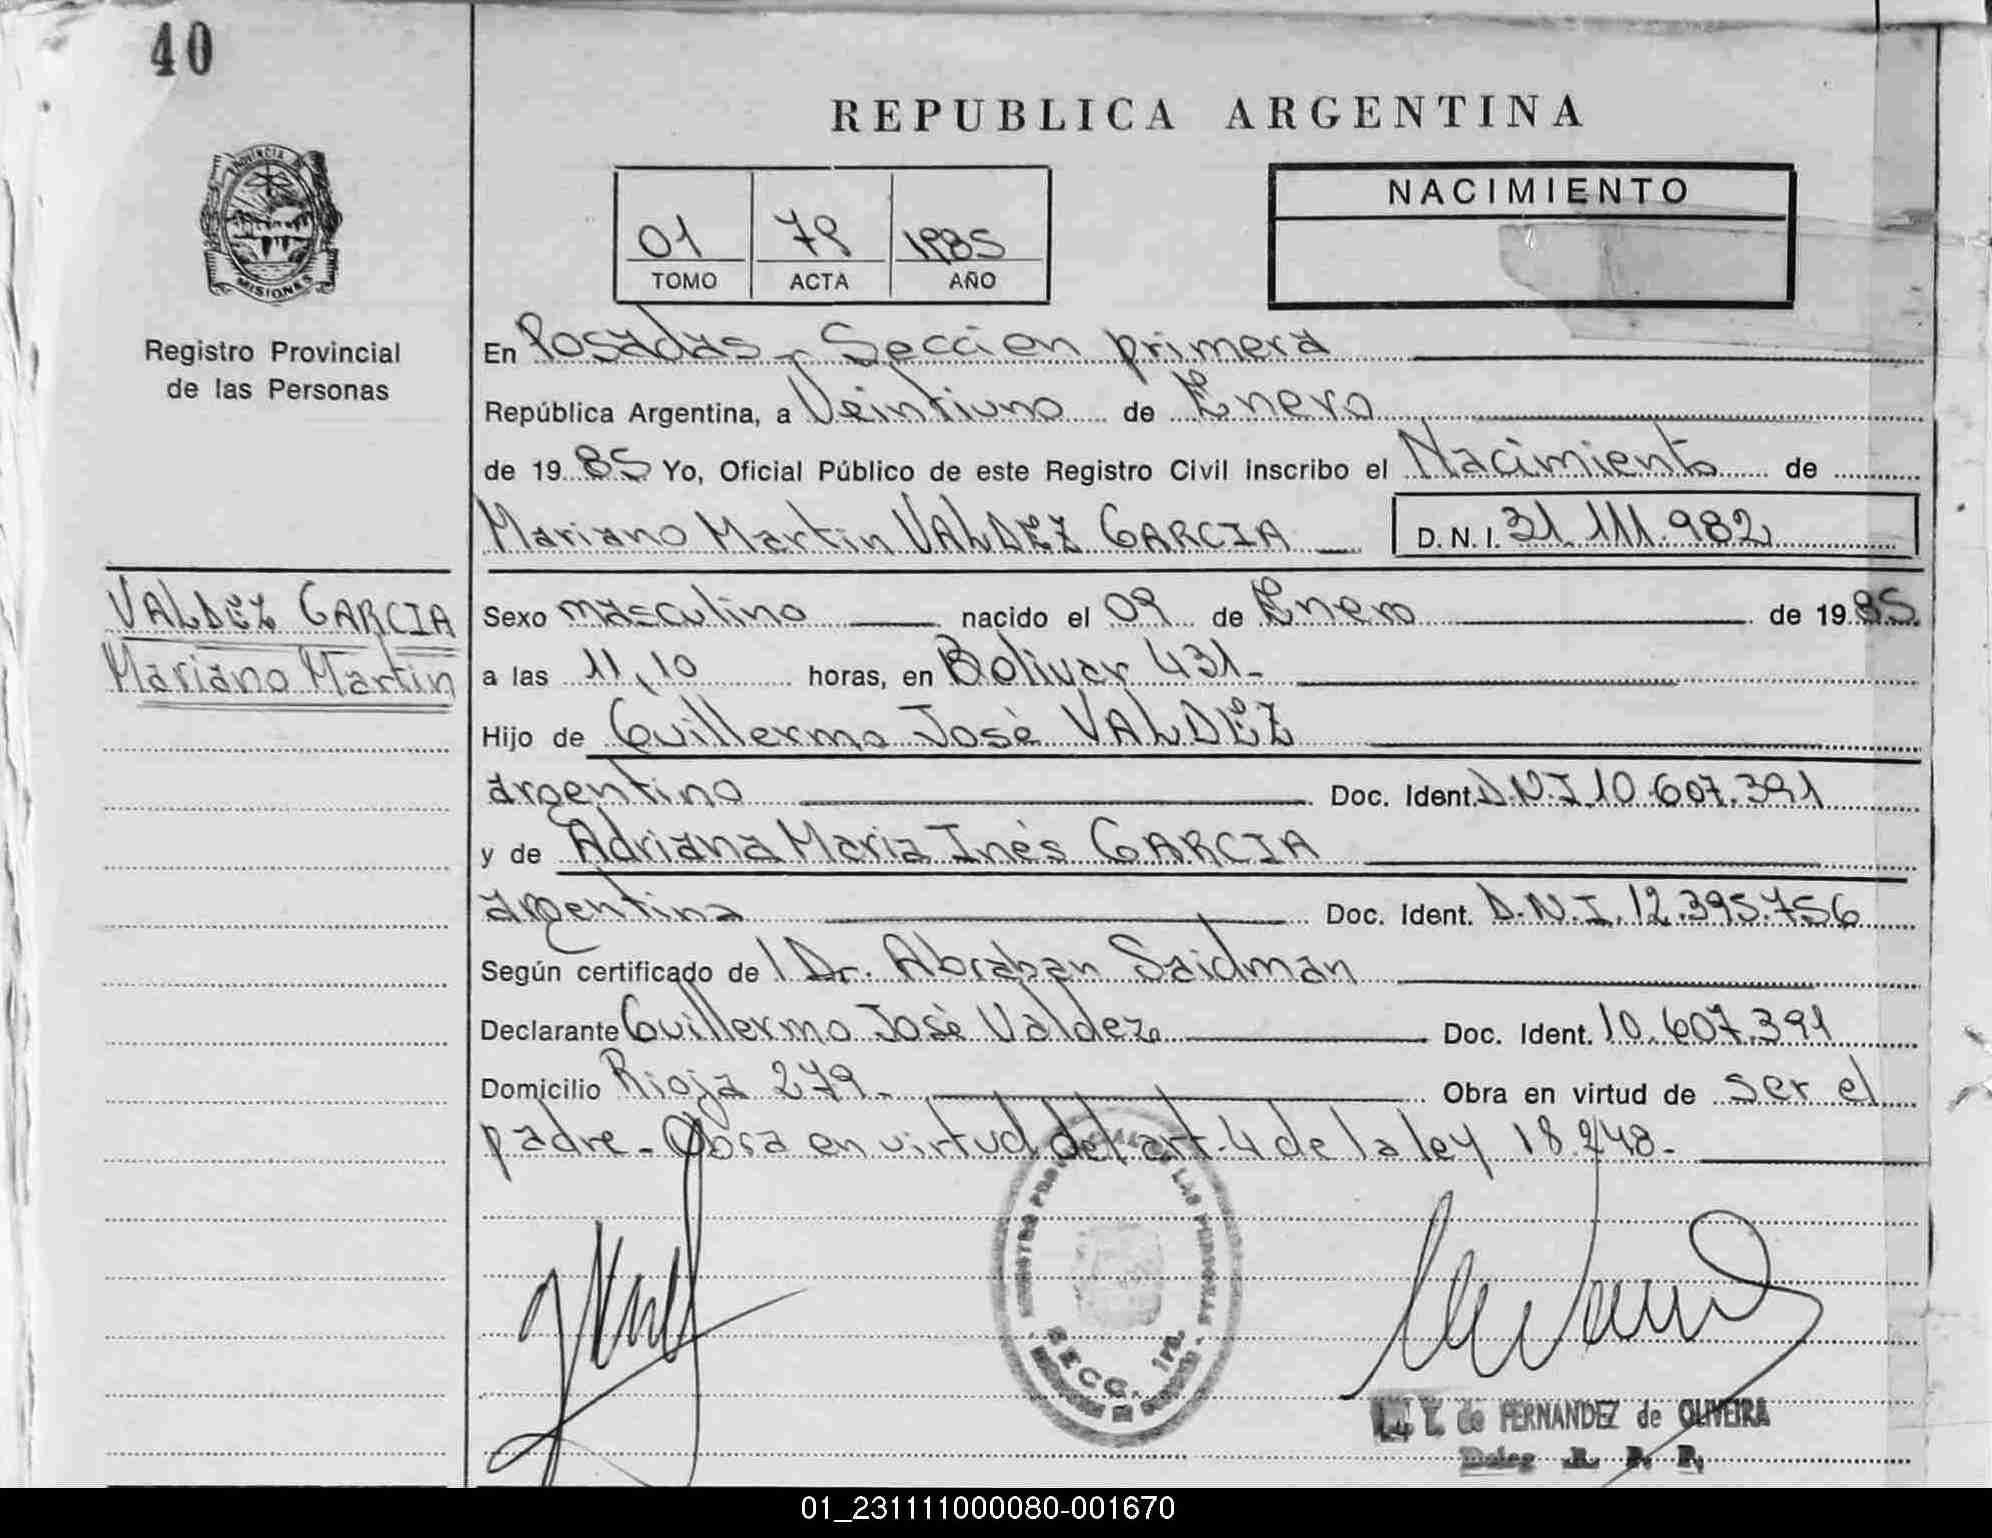 40
REPUBLICA ARGENTINA
PROVINCIA DE
MISIONES
Registro Provincial
de las Personas
NACIMIENTO
01 79 1985
TOMO ACTA AÑO
En Posadas - Seccion primera
República Argentina, a Veintiuno de Enero
de 1985 Yo, Oficial Público de este Registro Civil inscribo el Nacimiento de
Mariano Martin VALDEZ GARCIA D.N.I. 31.111.982
VALDEZ GARCIA
Mariano Martin
Sexo masculino nacido el 09 de Enero de 1985
a las 11,10 horas, en Bolivar 431-
Hijo de Guillermo José VALDEZ
argentino Doc. Ident. D.N.I 10.607.391
y de Adriana Maria Inés GARCIA
argentina Doc. Ident. D.N.I. 12.395.756
Según certificado de l Dr. Abrahan Saidman
Declarante Guillermo José Valdez Doc. Ident. 10.607.391
Domicilio Rioja 279- Obra en virtud de ser el
padre - Obra en virtud del art-4 de la ley 18.248-
LAS PERSONAS
SECC. 1ra.
de FERNANDEZ de OLIVEIRA
Deleg. R. P. P.
01_231111000080-001670